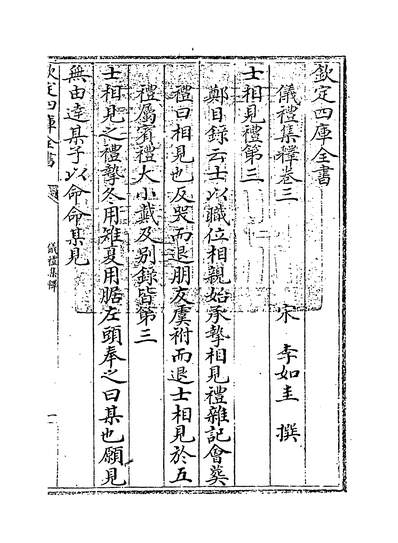 欽定四庫全書
儀禮集釋卷三
宋 李如圭 撰
士相見禮第三
鄭目録云士以職位相親始承摯相見禮雜記會葬
禮曰相見也反哭而退朋友虞祔而退士相見於五
禮屬賓禮大小戴及别録皆第三
士相見之禮摯冬用雉夏用腒左頭奉之曰某也願見
無由達某子以命命某見
欽定四庫全書
儀禮集釋
一